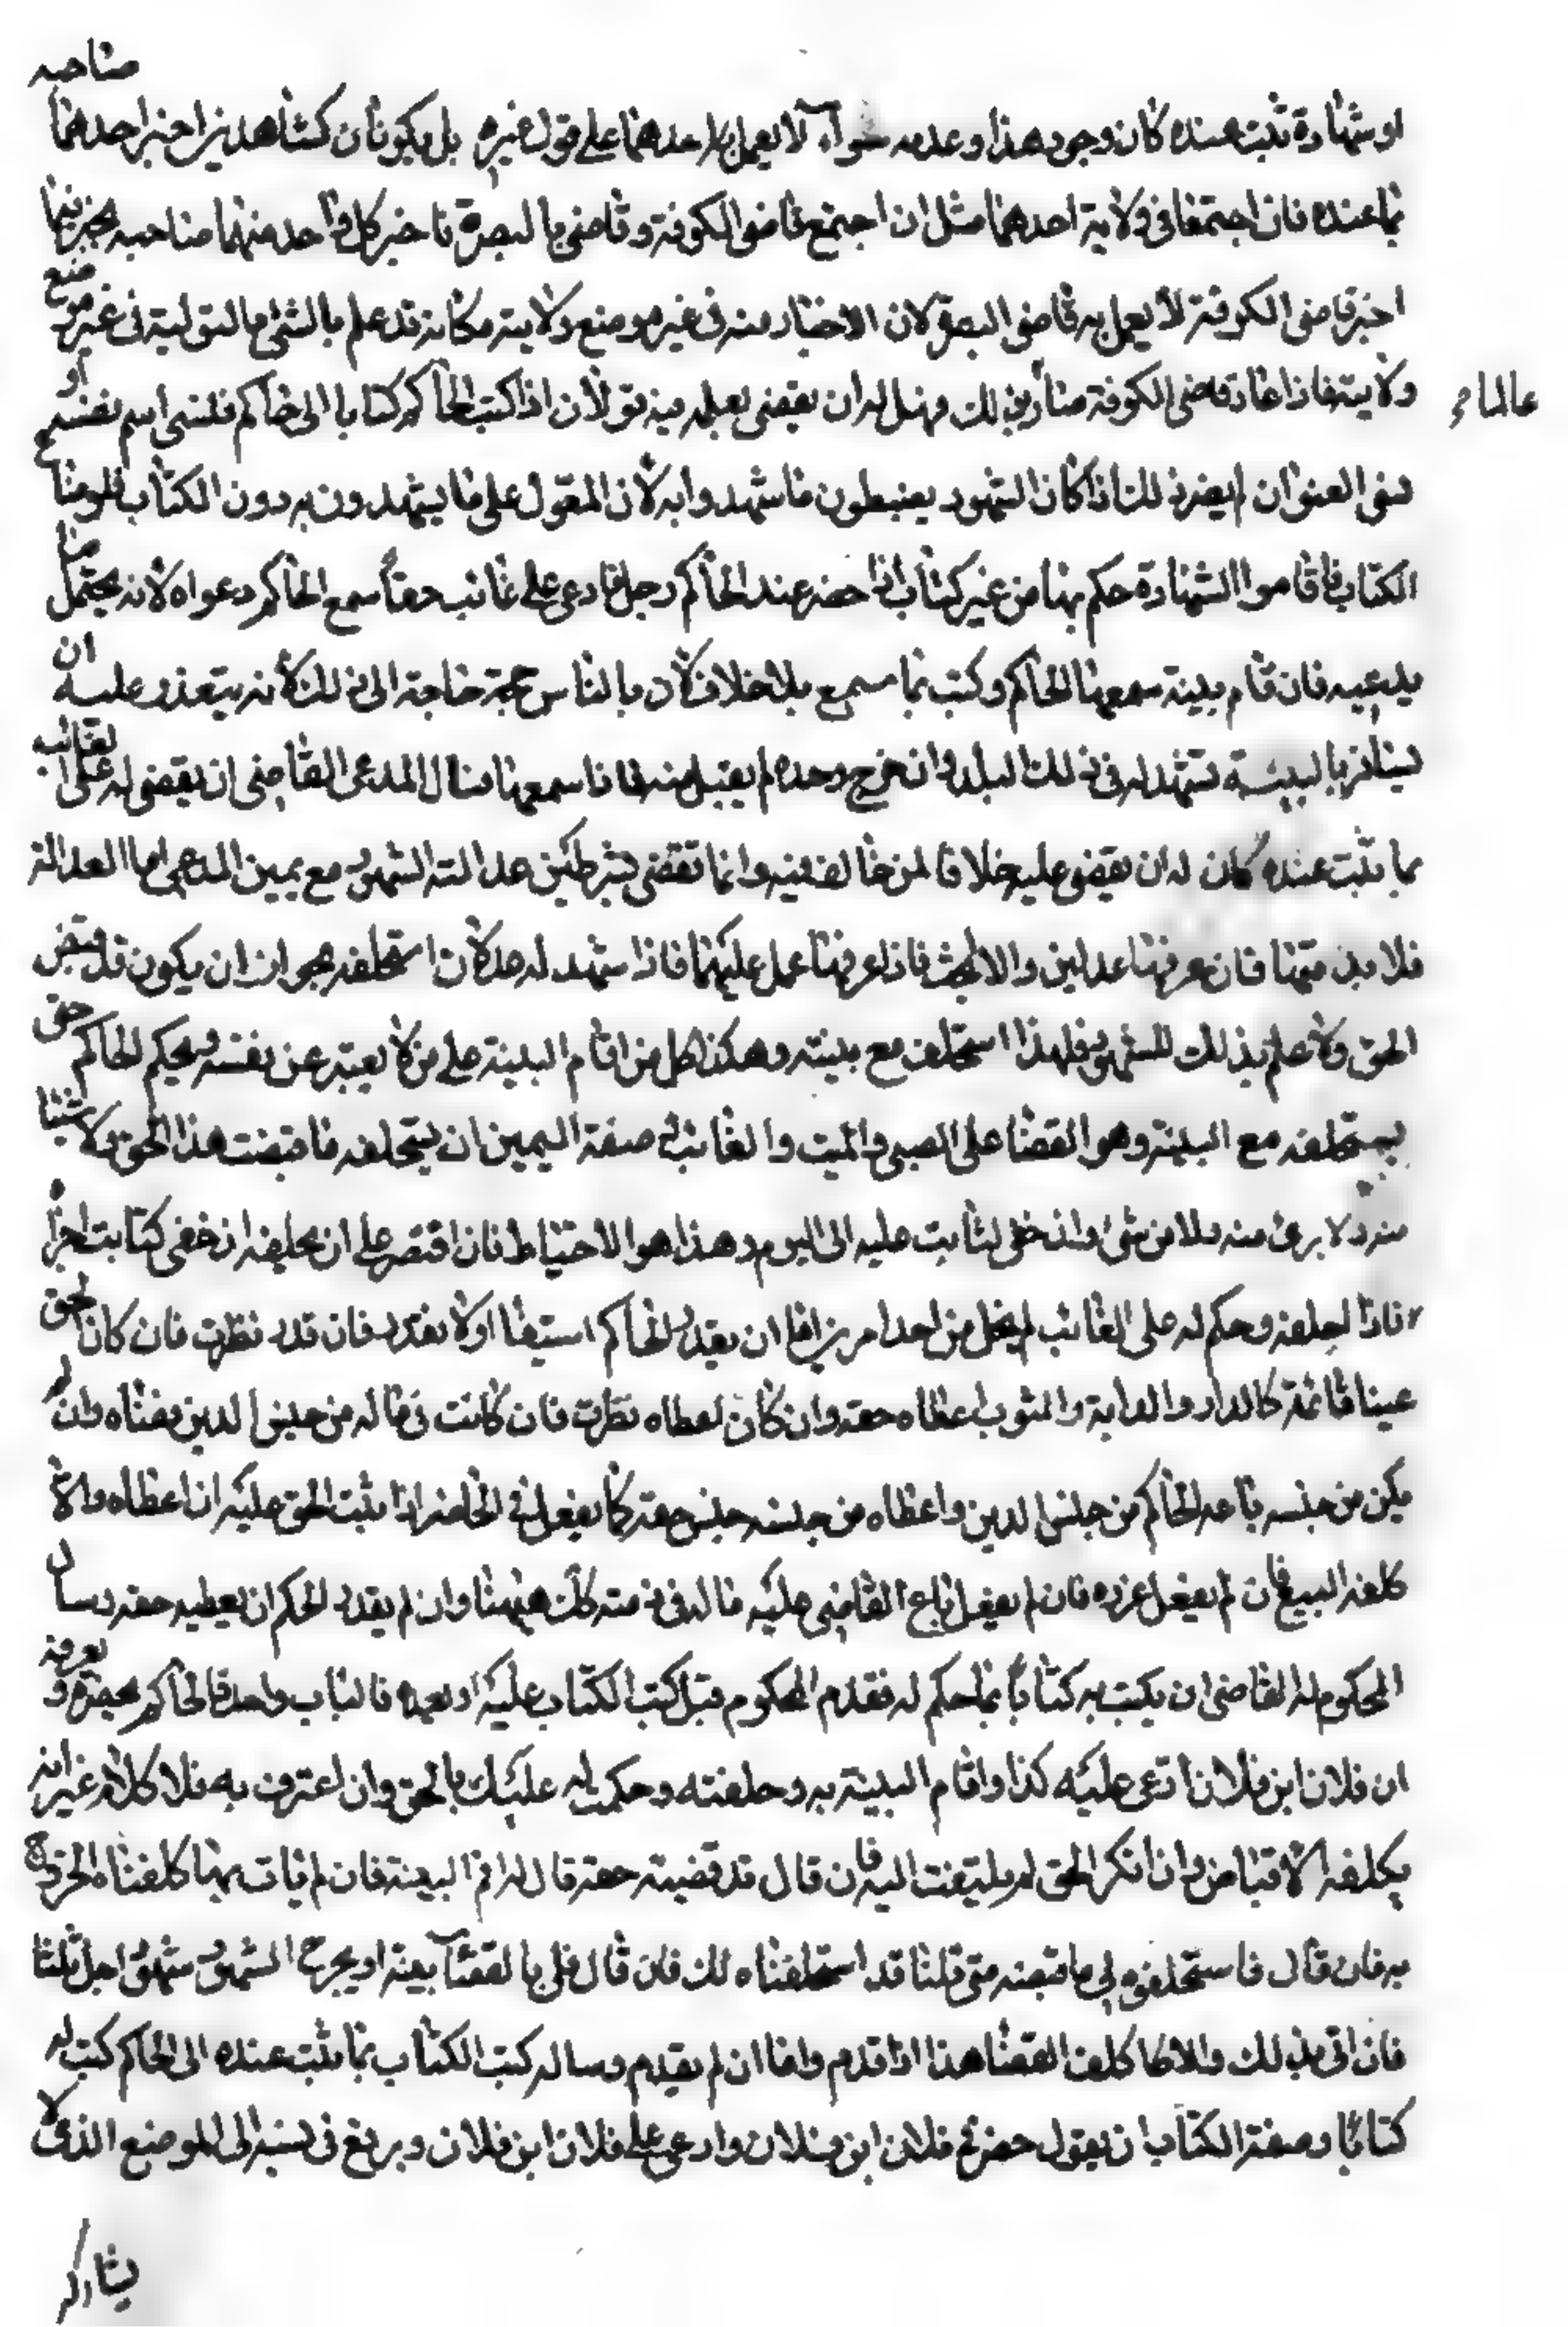 او شهادة تثبت عنده كان وجود هذا وعدمه سواء لا يعمل احدهما على قول غيره بل يكونان كشاهدين اخبر احدهما صاحبه
بما عنده فان اجتمعا فى ولاية احدهما مثل ان اجتمع قاضى الكوفة وقاضى بالبصرة فاخبر كل واحد منهما صاحبه بخبر فما
اخبر قاضى الكوفة لا يعمل به قاضى البصرة لان الاخبار منه فى غير موضع ولايته مكانه قد علم بالشئ بالتولية فى غير موضع
ولايته فاذا عاد قاضى الكوفة صار بذلك عالما وهل له ان يقضى بعلمه فيه قولان اذا كتب الحاكم كتابا الى حاكم فنسى اسم نفسه او
فى العنوان لم يضر ذلك اذا كان الشهود يضبطون ما شهدوا به لان المعول على ما يشهدون به دون الكتاب فلو ضاع
الكتاب فاقاموا الشهادة حكم بها من غير كتاب اذا حضر عند الحاكم رجل فادعى على غائب حقا سمع الحاكم دعواه لانه يحتمل ما
يدعيه فان قام بينة سمعها الحاكم وكتب بما سمع بلا خلاف لان بالناس حاجة الى ذلك لانه يتعذر عليه ان
يسافر بالبينة تشهد له فى ذلك البلد وان خرج وحده لم يقبل منه فاذا سمعها وسال المدعى القاضى ان يقضى له على الغائب
بما ثبت عنده كان له ان يقضى عليه خلافا لمن خالف فيه وانما تقضى بشرطين عدالة الشهود مع يمين المدعى اما العدالة
فلا بد منها فان عرفها عدلين والا بحث فاذا عرفها عمل عليها فاذا شهد له عدلان استحلفه لجواز ان يكون قد قبض
الحق ولا علم بذلك للشهود فلهذا استحلف مع بينته وهكذا كل من اقام البينة على من لا يعبر عن نفسه ويحكم الحاكم حتى
يستحلفه مع البينة وهو القضا على الصبى والميت والغائب فى صفة اليمين ان يستحلفه ما قبضت هذا الحق ولا شيئا
منه ولا برئ منه ولا من شئ وان حقى لثابت عليه الى اليوم وهذا هو الاحتياط فان اقتصر على ان يحلفه ان حقى لثابت اجزا
فاذا احلفه وحكم له على الغائب لم يخل من احد امرين اما ان يقدر الحاكم استيفا او لا يقدر فان قدر نظرت فان كان الحق
عينا قائمة كالدار والدابة والثوب اعطاه حقه وان كان اعطاه نظرت فان كانت فى ماله من جنس الدين قضاه وان لم
يكن من جنسه باعه الحاكم من جنس الدين واعطاه من جنسه جنس حقه كما يفعل فى الحاضر اذا ثبت الحق عليه ان اعطاه والا
كلفه البيع فان لم يفعل عزره فان لم يفعل باع القاضى عليه ماله فى ذمته كك هيهنا وان لم يقدر الحكم ان يعطيه حقه وسال
المحكوم له القاضى ان يكتب به كتابا بما حكم له فقدم المحكوم قبل كتب الكتاب عليه او بعده فالباب واحد فالحاكم يحضره ويعرفه
ان فلان ابن فلان ادعى عليه كذا واقام البينة به وحلفته وحكمت له عليك بالحق وان اعترف به فلا كلام غير انه
يكلفه الاقباض وان انكر الحق لم يلتفت اليه فان قال قد قضيته حقه قال له اقم البينة فان لم يات بها كلفناه الخروج
به فان قال فاستحلفوه لى ما قبضه متى قلنا قد استحلفناه لك فان قال فلى بالقضا بينة او يجرح الشهود شهود اجل ثلثا
فان اتى بذلك والا كلف القضا هذا اذا قدم واما ان لم يقدم وساله كتب الكتاب بما ثبت عنده الى الحاكم كتب له
كتابا وصفة الكتاب ان يقول حضر فى فلان ابن فلان وادعى على فلان ابن فلان ويرفع فى نسبه الى الموضع الذى لا
يشاركه